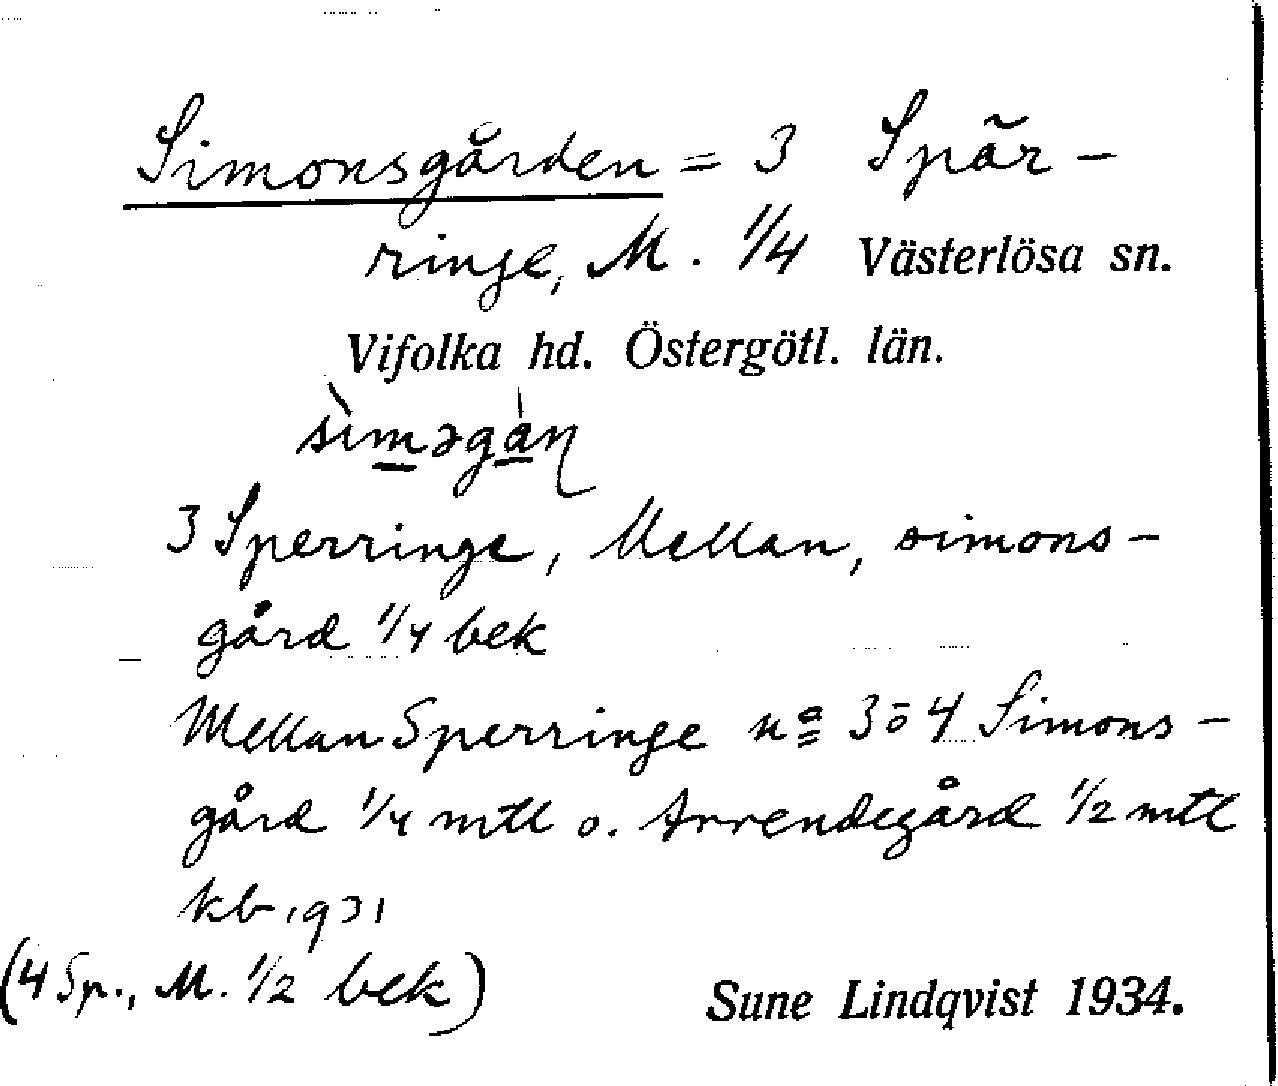 Simonsgården = 3 Spär-
ringe, M. 1/4 Västerlösa sn.
Vifolka hd. Östergötl. län.
3 Sperringe, Mellan, simons-
gård 1/4 bek
Mellan Sperringe nº 3 o 4 Simons-
gård 1/4 mtl o. Arrendegård 1/2 mtl
kb 1931
(4 Sp., M. 1/2 bek)
Sune Lindqvist 1934.